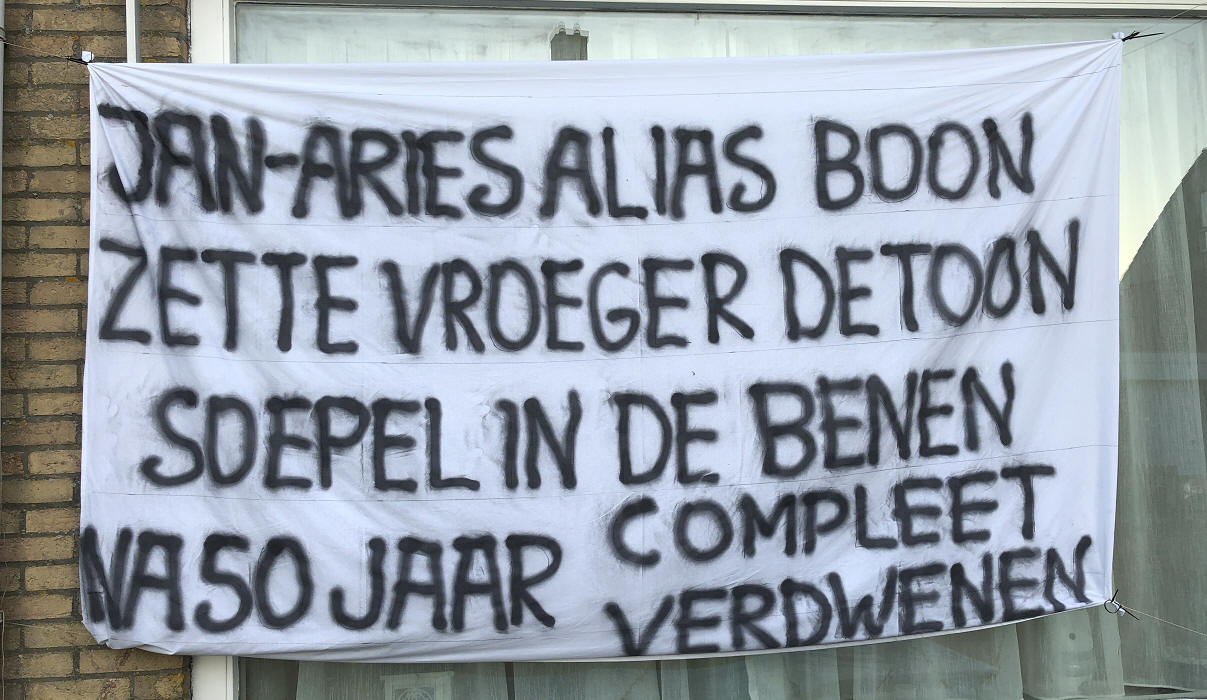 JAN-ARIES ALIAS BOON
ZETTE VROEGER DE TOON
SOEPEL IN DE BENEN
NA 50 JAAR COMPLEET
VERDWENEN